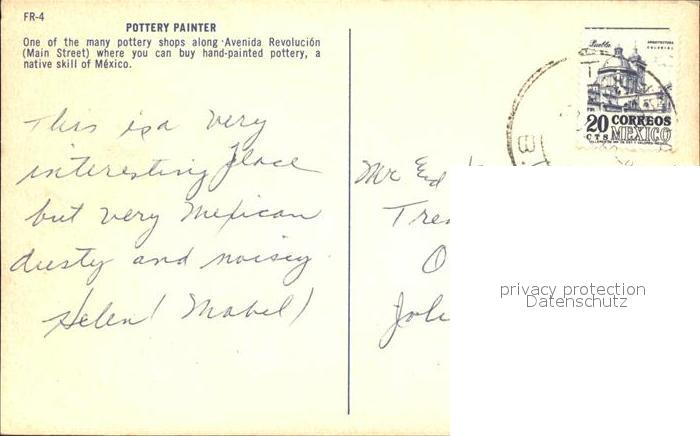 FR-4
POTTERY PAINTER
One of the many pottery shops along Avenida Revolución
(Main Street) where you can buy hand-painted pottery, a
native skill of México.
This is a very
interesting place
but very Mexican
dusty and noisy
Helen / Mabel /
Puebla
ARQUITECTURA
COLONIAL
20 CORREOS
CTS MEXICO
Mr Ed
Tre
O
privacy protection
Datenschutz